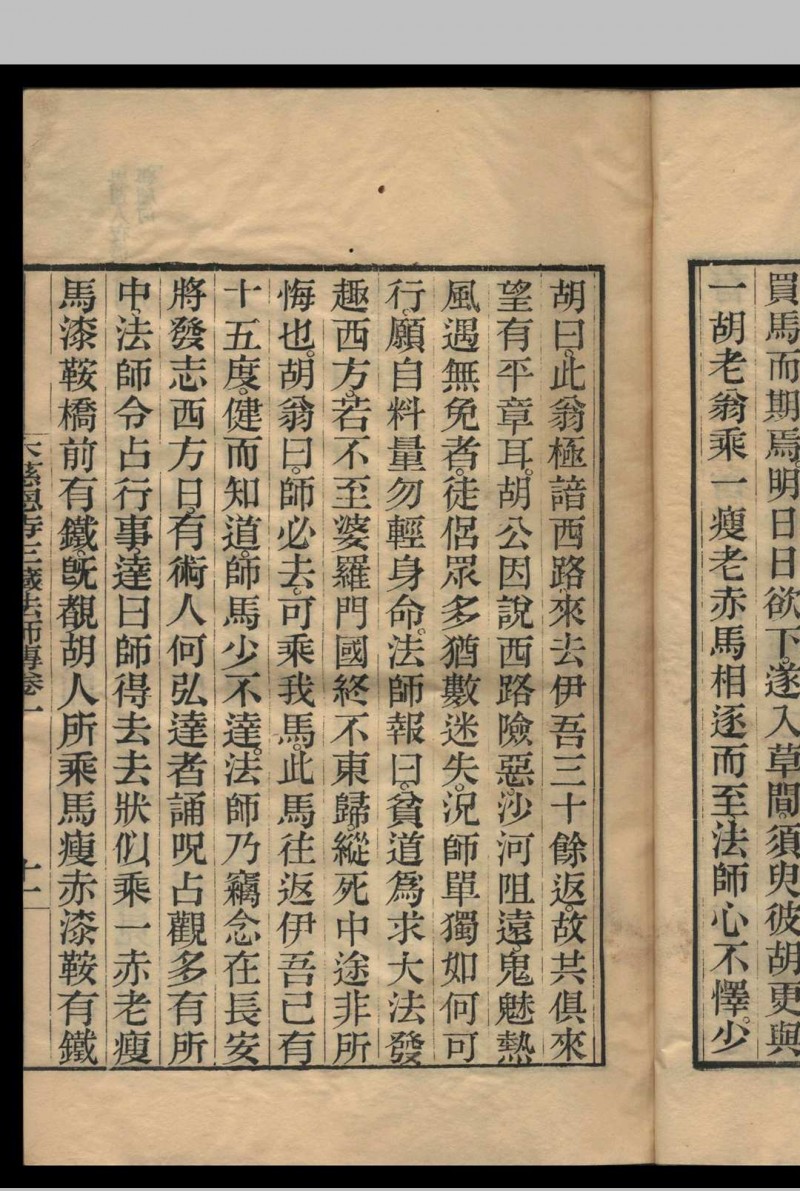 買馬而期焉。明日日欲下。遂入草間。須臾彼胡更與
一胡老翁乘一瘦老赤馬相逐而至。法師心不懌。少
胡曰。此翁極諳西路。來去伊吾三十餘返。故共俱來
望有平章耳。胡公因說西路險惡。沙河阻遠。鬼魅熱
風遇無免者。徒侶眾多猶數迷失。況師單獨如何可
行。願自料量勿輕身命。法師報曰。貧道為求大法發
趣西方。若不至婆羅門國終不東歸。縱死中途非所
悔也。胡翁曰。師必去。可乘我馬。此馬往返伊吾已有
十五度。健而知道。師馬少不達。法師乃竊念在長安
將發志西方日。有術人何弘達者誦呪占觀多有所
中。法師令占行事。達曰師得去。去狀似乘一赤老瘦
馬漆鞍橋前有鐵。旣覩胡人所乘馬瘦赤漆鞍有鐵
大慈恩寺三藏法師傳卷一
十一